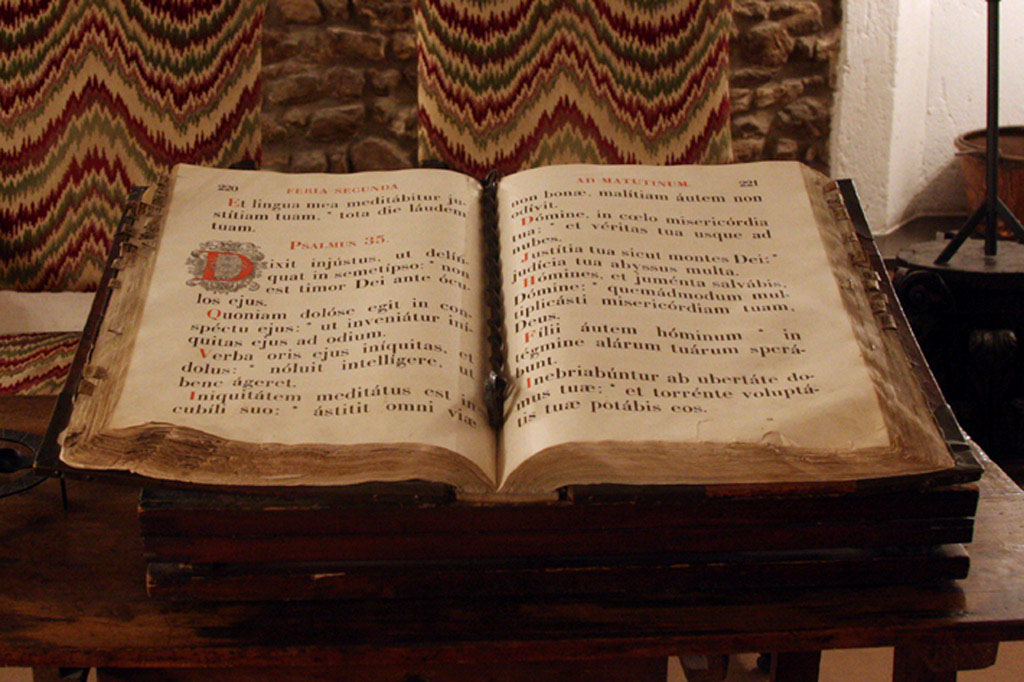 220 FERIA SECUNDA
Et lingua mea meditábitur ju-
stítiam tuam, * tota die láudem
tuam.
PSALMUS 35.
Dixit injústus, ut delín-
quat in semetípso: * non
est timor Dei ante ócu-
los ejus.
Quoniam dolóse egit in con-
spéctu ejus: * ut inveniátur iní-
quitas ejus ad odium.
Verba oris ejus iníquitas, et
dolus: * nóluit intellígere, ut
bene ágeret.
Iniquitátem meditátus est in
cubíli suo: * ástitit omni viæ
AD MATUTINUM. 221
non bonæ, malítiam áutem non
odívit.
Dómine, in cœlo misericórdia
tua: * et véritas tua usque ad
nubes.
Justítia tua sicut montes Dei: *
judícia tua abyssus multa.
Hómines, et juménta salvábis,
Dómine: * quemádmodum mul-
tiplicásti misericórdiam tuam,
Deus.
Fílii áutem hóminum * in
tégmine alárum tuárum sperá-
bunt.
Inebriabúntur ab ubertáte do-
mus tuæ: * et torrénte voluptá-
tis tuæ potábis eos.